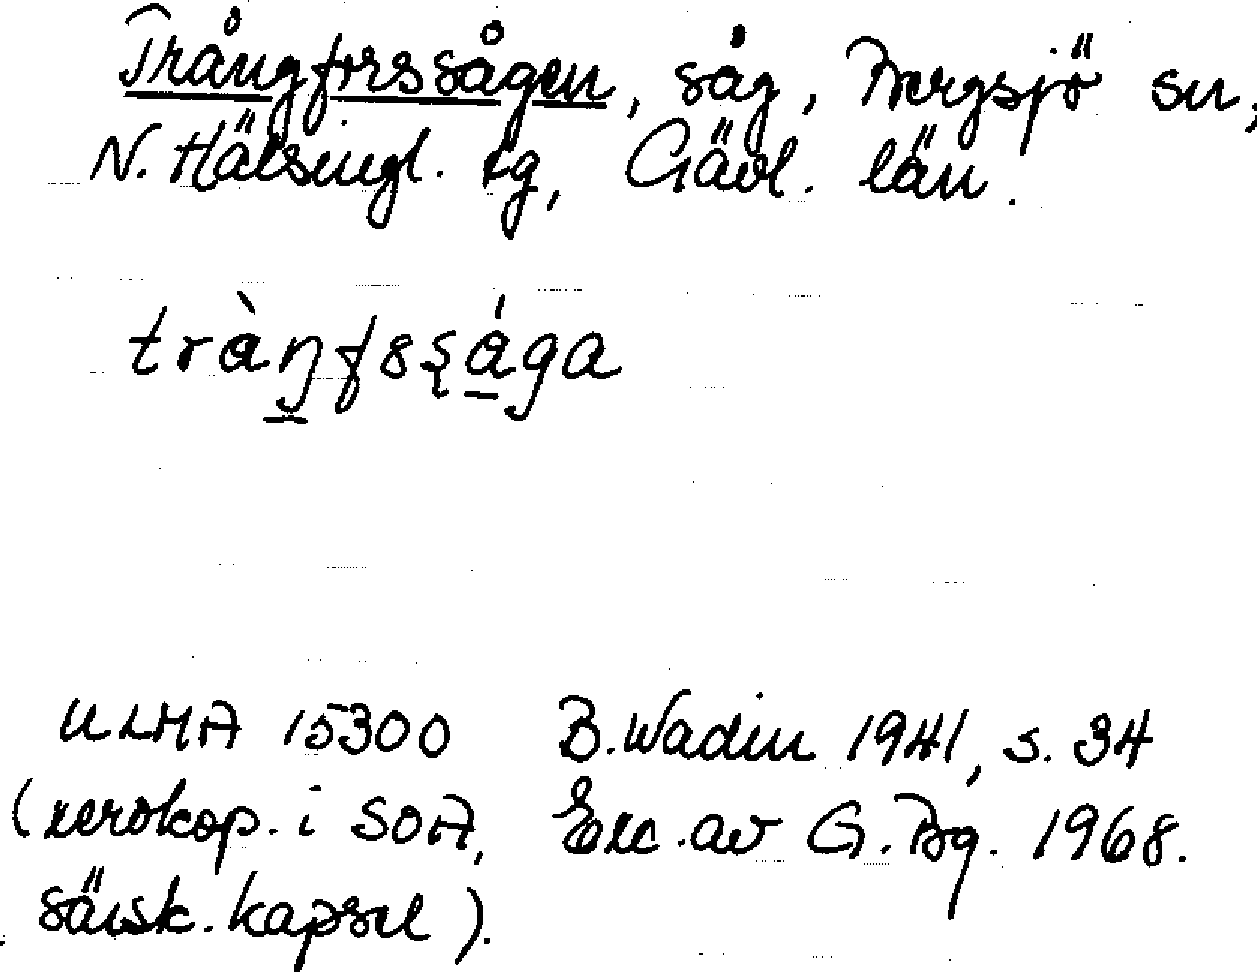 Trångforssågen, såg, Bergsjö sn,
N. Hälsingl. tg, Gävl. län.
tràŋfsșága
ULMA 15300 B. Wadin 1941, s. 34
(xerokop. i SOA, Exc. av G. Bg. 1968.
särsk. kapsel).